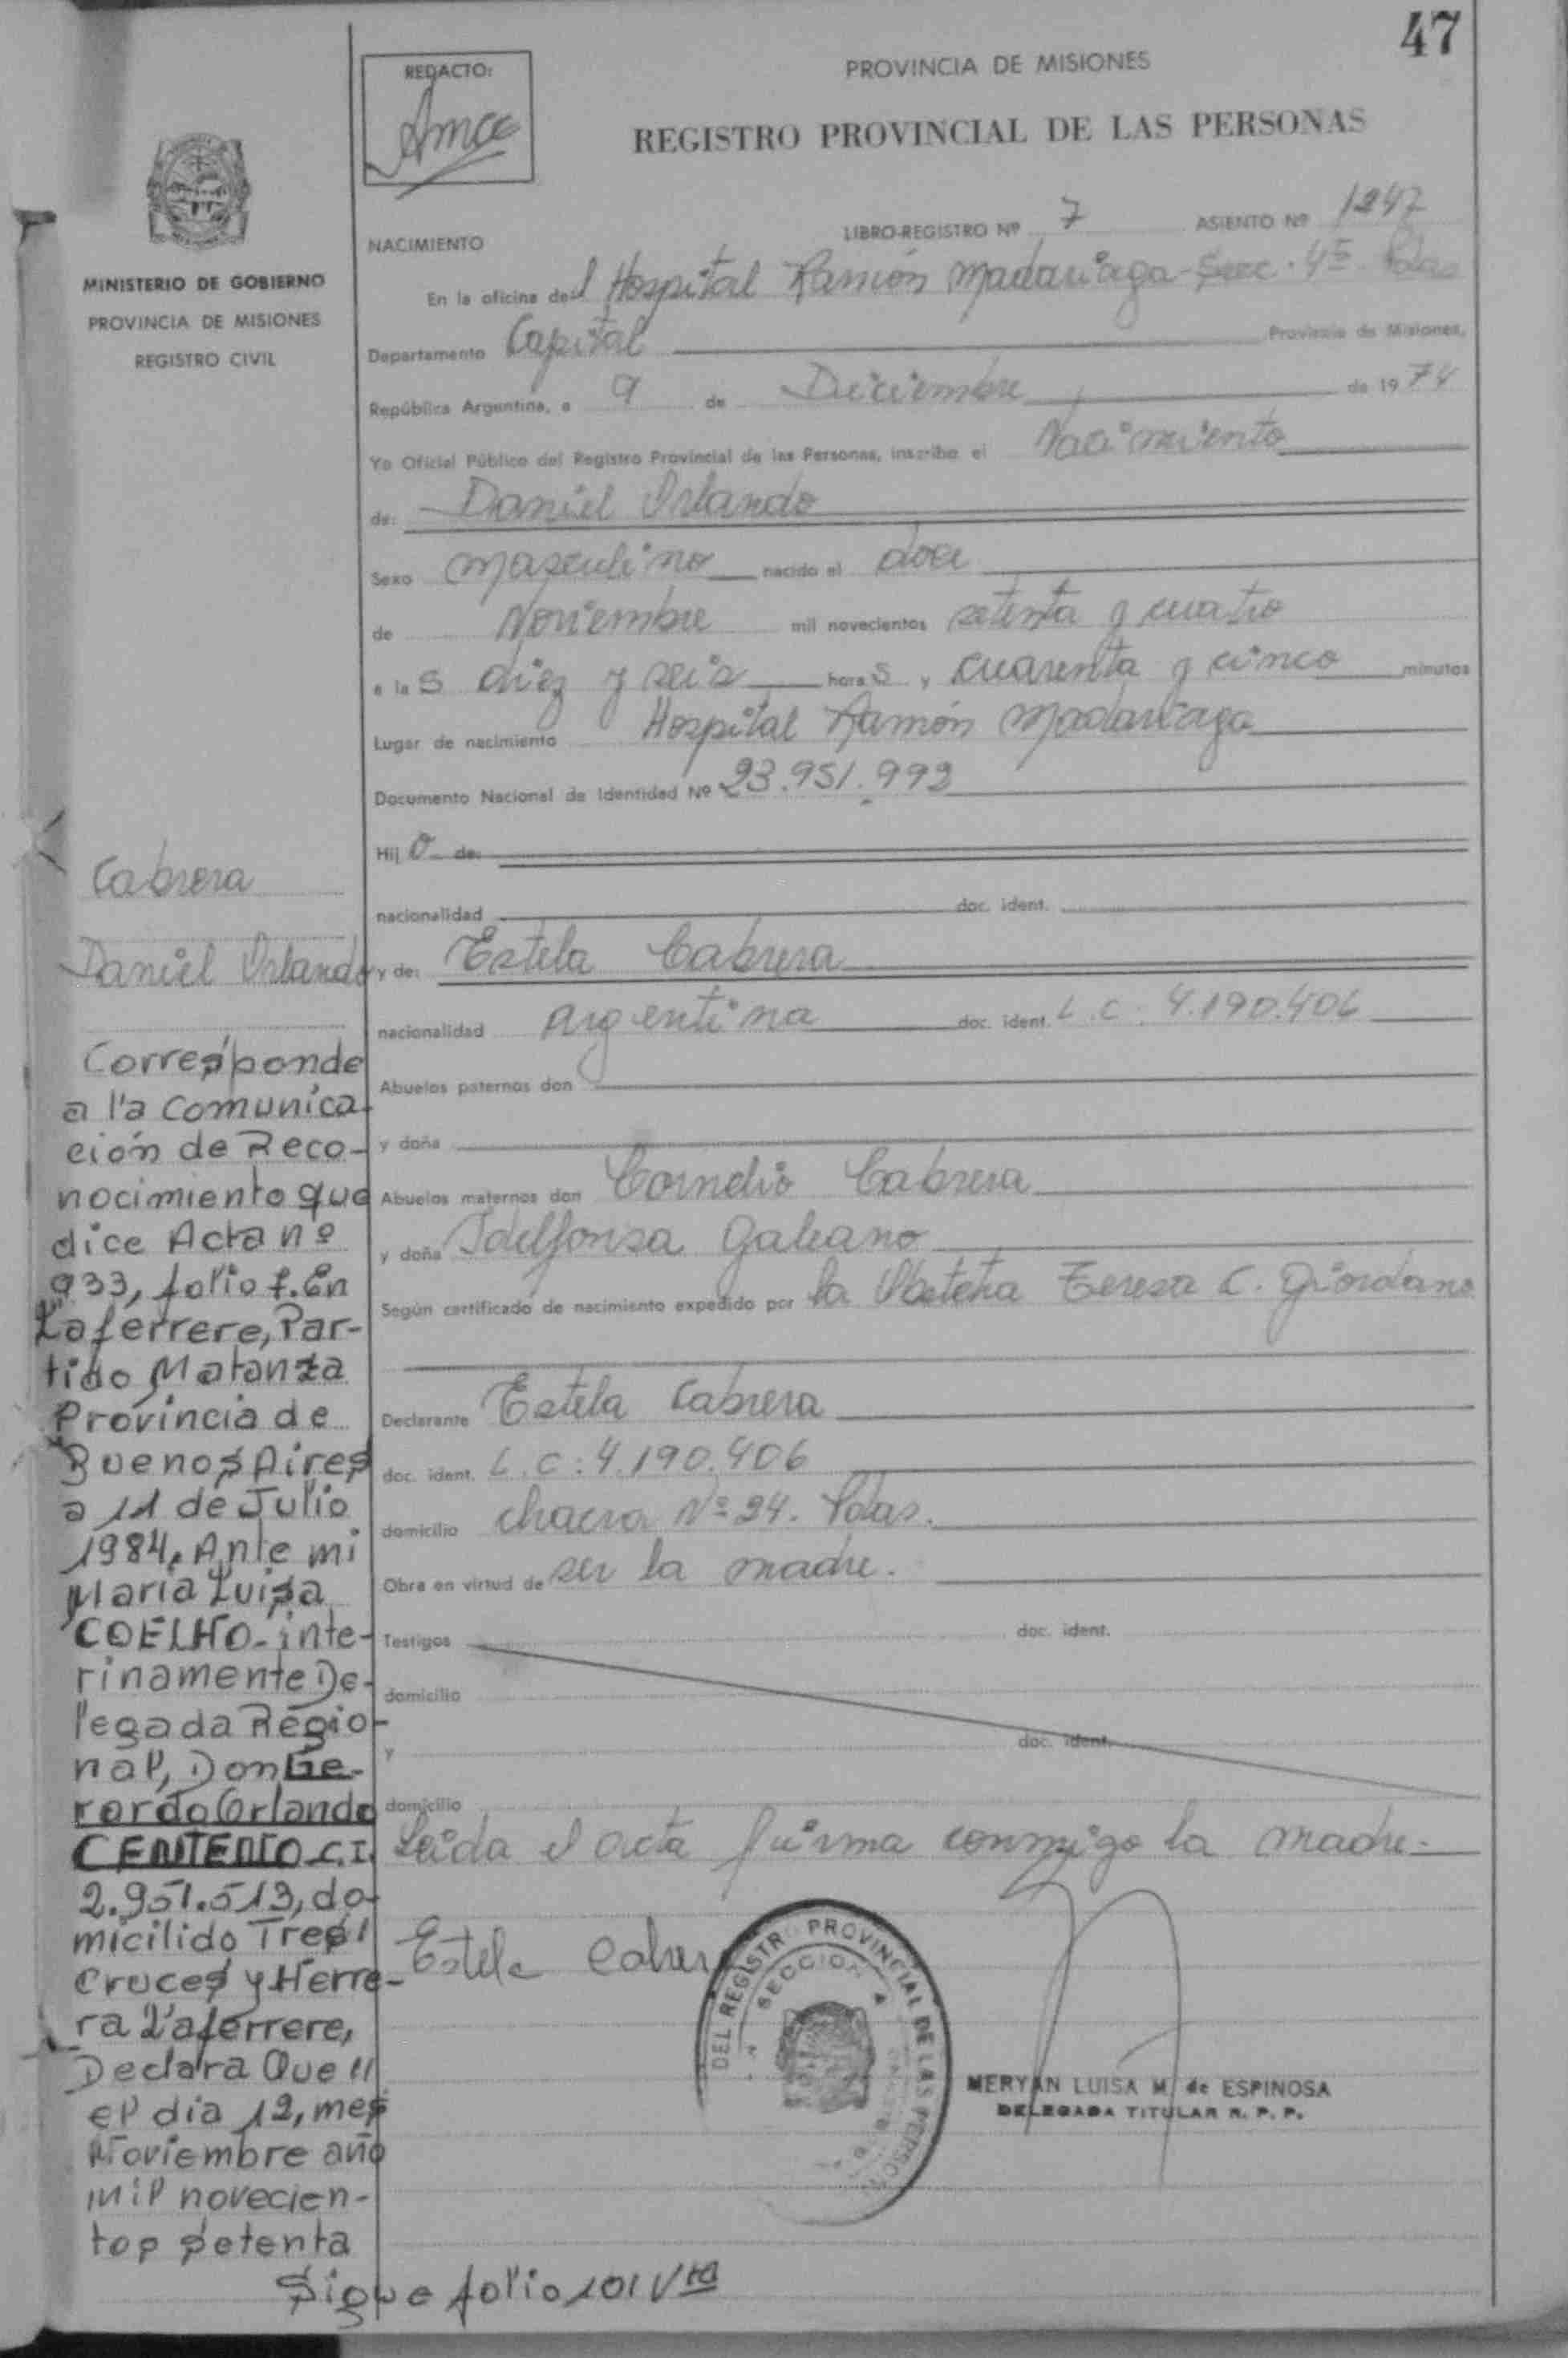 47
REDACTO:
PROVINCIA DE MISIONES
REGISTRO PROVINCIAL DE LAS PERSONAS
MINISTERIO DE GOBIERNO
PROVINCIA DE MISIONES
REGISTRO CIVIL
NACIMIENTO
LIBRO-REGISTRO Nº 7 ASIENTO Nº 1247
En la oficina del Hospital Ramón Madariaga - Secc. 4ª Pdas
Departamento Capital Provincia de Misiones,
República Argentina, a 9 de Diciembre de 1974
Yo Oficial Público del Registro Provincial de las Personas, inscribo el Nacimiento
de: Daniel Orlando
Sexo masculino nacido el doce
de Noviembre mil novecientos setenta y cuatro
a las diez y seis horas y cuarenta y cinco minutos
Lugar de nacimiento Hospital Ramón Madariaga
Documento Nacional de Identidad Nº 23.951.992
Hijo de:
nacionalidad doc. ident.
y de: Estela Cabrera
nacionalidad Argentina doc. ident. L.C. 4.190.406
Abuelos paternos don
y doña
Abuelos maternos don Cornelio Cabrera
y doña Idelfonsa Galeano
Según certificado de nacimiento expedido por la Obstetra Teresa C. Giordano
Declarante Estela Cabrera
doc. ident. L.C: 4.190.406
domicilio chacra Nº 24. Pdas.
Obra en virtud de ser la madre.
Testigos doc. ident.
domicilio
y doc. ident.
domicilio
Leida el acta firma conmigo la madre.
Estela Cabrera
DEL REGISTRO PROVINCIAL DE LAS PERSON
SECCION 4
MERYAN LUISA M. de ESPINOSA
DELEGADA TITULAR R. P. P.
Cabrera
Daniel Orlando
Corresponde
a la comunica-
ción de Reco-
nocimiento que
dice Acta nº
933, folio f. En
Laferrere, Par-
tido Matanza
Provincia de
Buenos Aires
a 11 de Julio
1984. Ante mi
Maria Luisa
COELHO- inte-
rinamente De-
legada Regio-
nal, Don Ge-
rardo Orlando
CENTENO C.I.
2.951.513, do-
micilido Tres
Cruces y Herre-
ra Laferrere,
Declara Que "
el dia 12, mes
Noviembre año
mil novecien-
tos setenta
Sigue folio 101 Vta